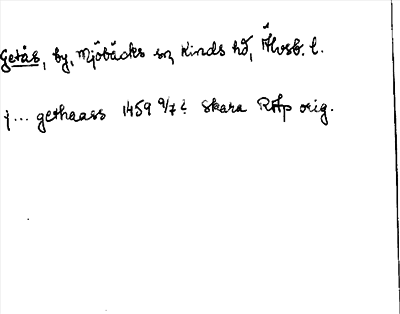 Getås, by, Mjöbäcks sn, Kinds hd, Älvsb. l.
i ... gethaass 1459 9/7 ? Skara RAp orig.